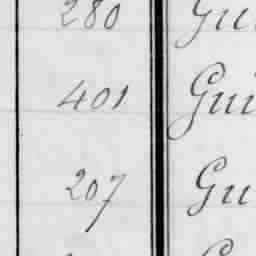 280 Gu
401 Gui
207 Gu